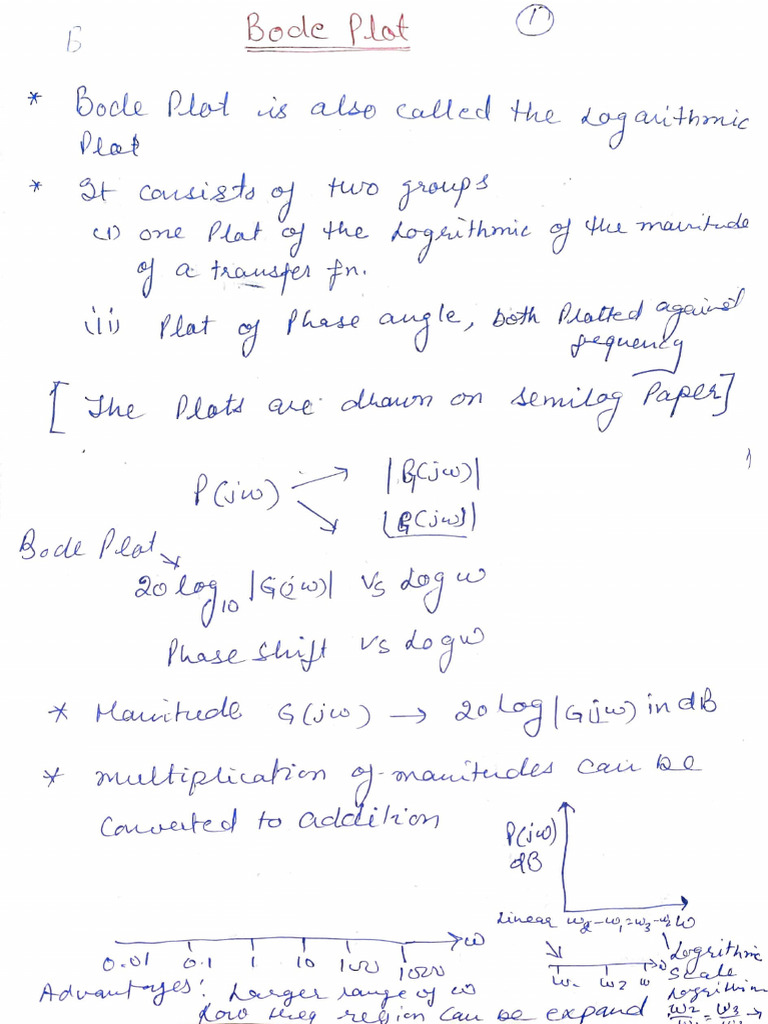 B
Bode Plot
1
* Bode Plot is also called the Logarithmic
Plot
* It consists of two groups
(i) one Plot of the Logrithmic of the manitude
of a transfer fn.
(ii) Plot of Phase angle, both Plotted against
frequency
[ The Plots are drawn on semilog Paper]
P(jω) |G(jω)|
∠G(jω)
Bode Plot
20 log10 |G(jω)| Vs Log ω
Phase shift Vs Log ω
* Manitude G(jω) → 20 Log |G(jω) in dB
* multiplication of manitudes can be
Converted to addition
P(jω)
dB
Linear ω2-ω1=ω3-ω2 ω
0.01 0.1 1 10 100 1000 ω
ω1 ω2 ω
Logrithmic
scale
Logrithmic
ω2 = ω3
Advantages: Larger range of ω
Low freq region can be expand